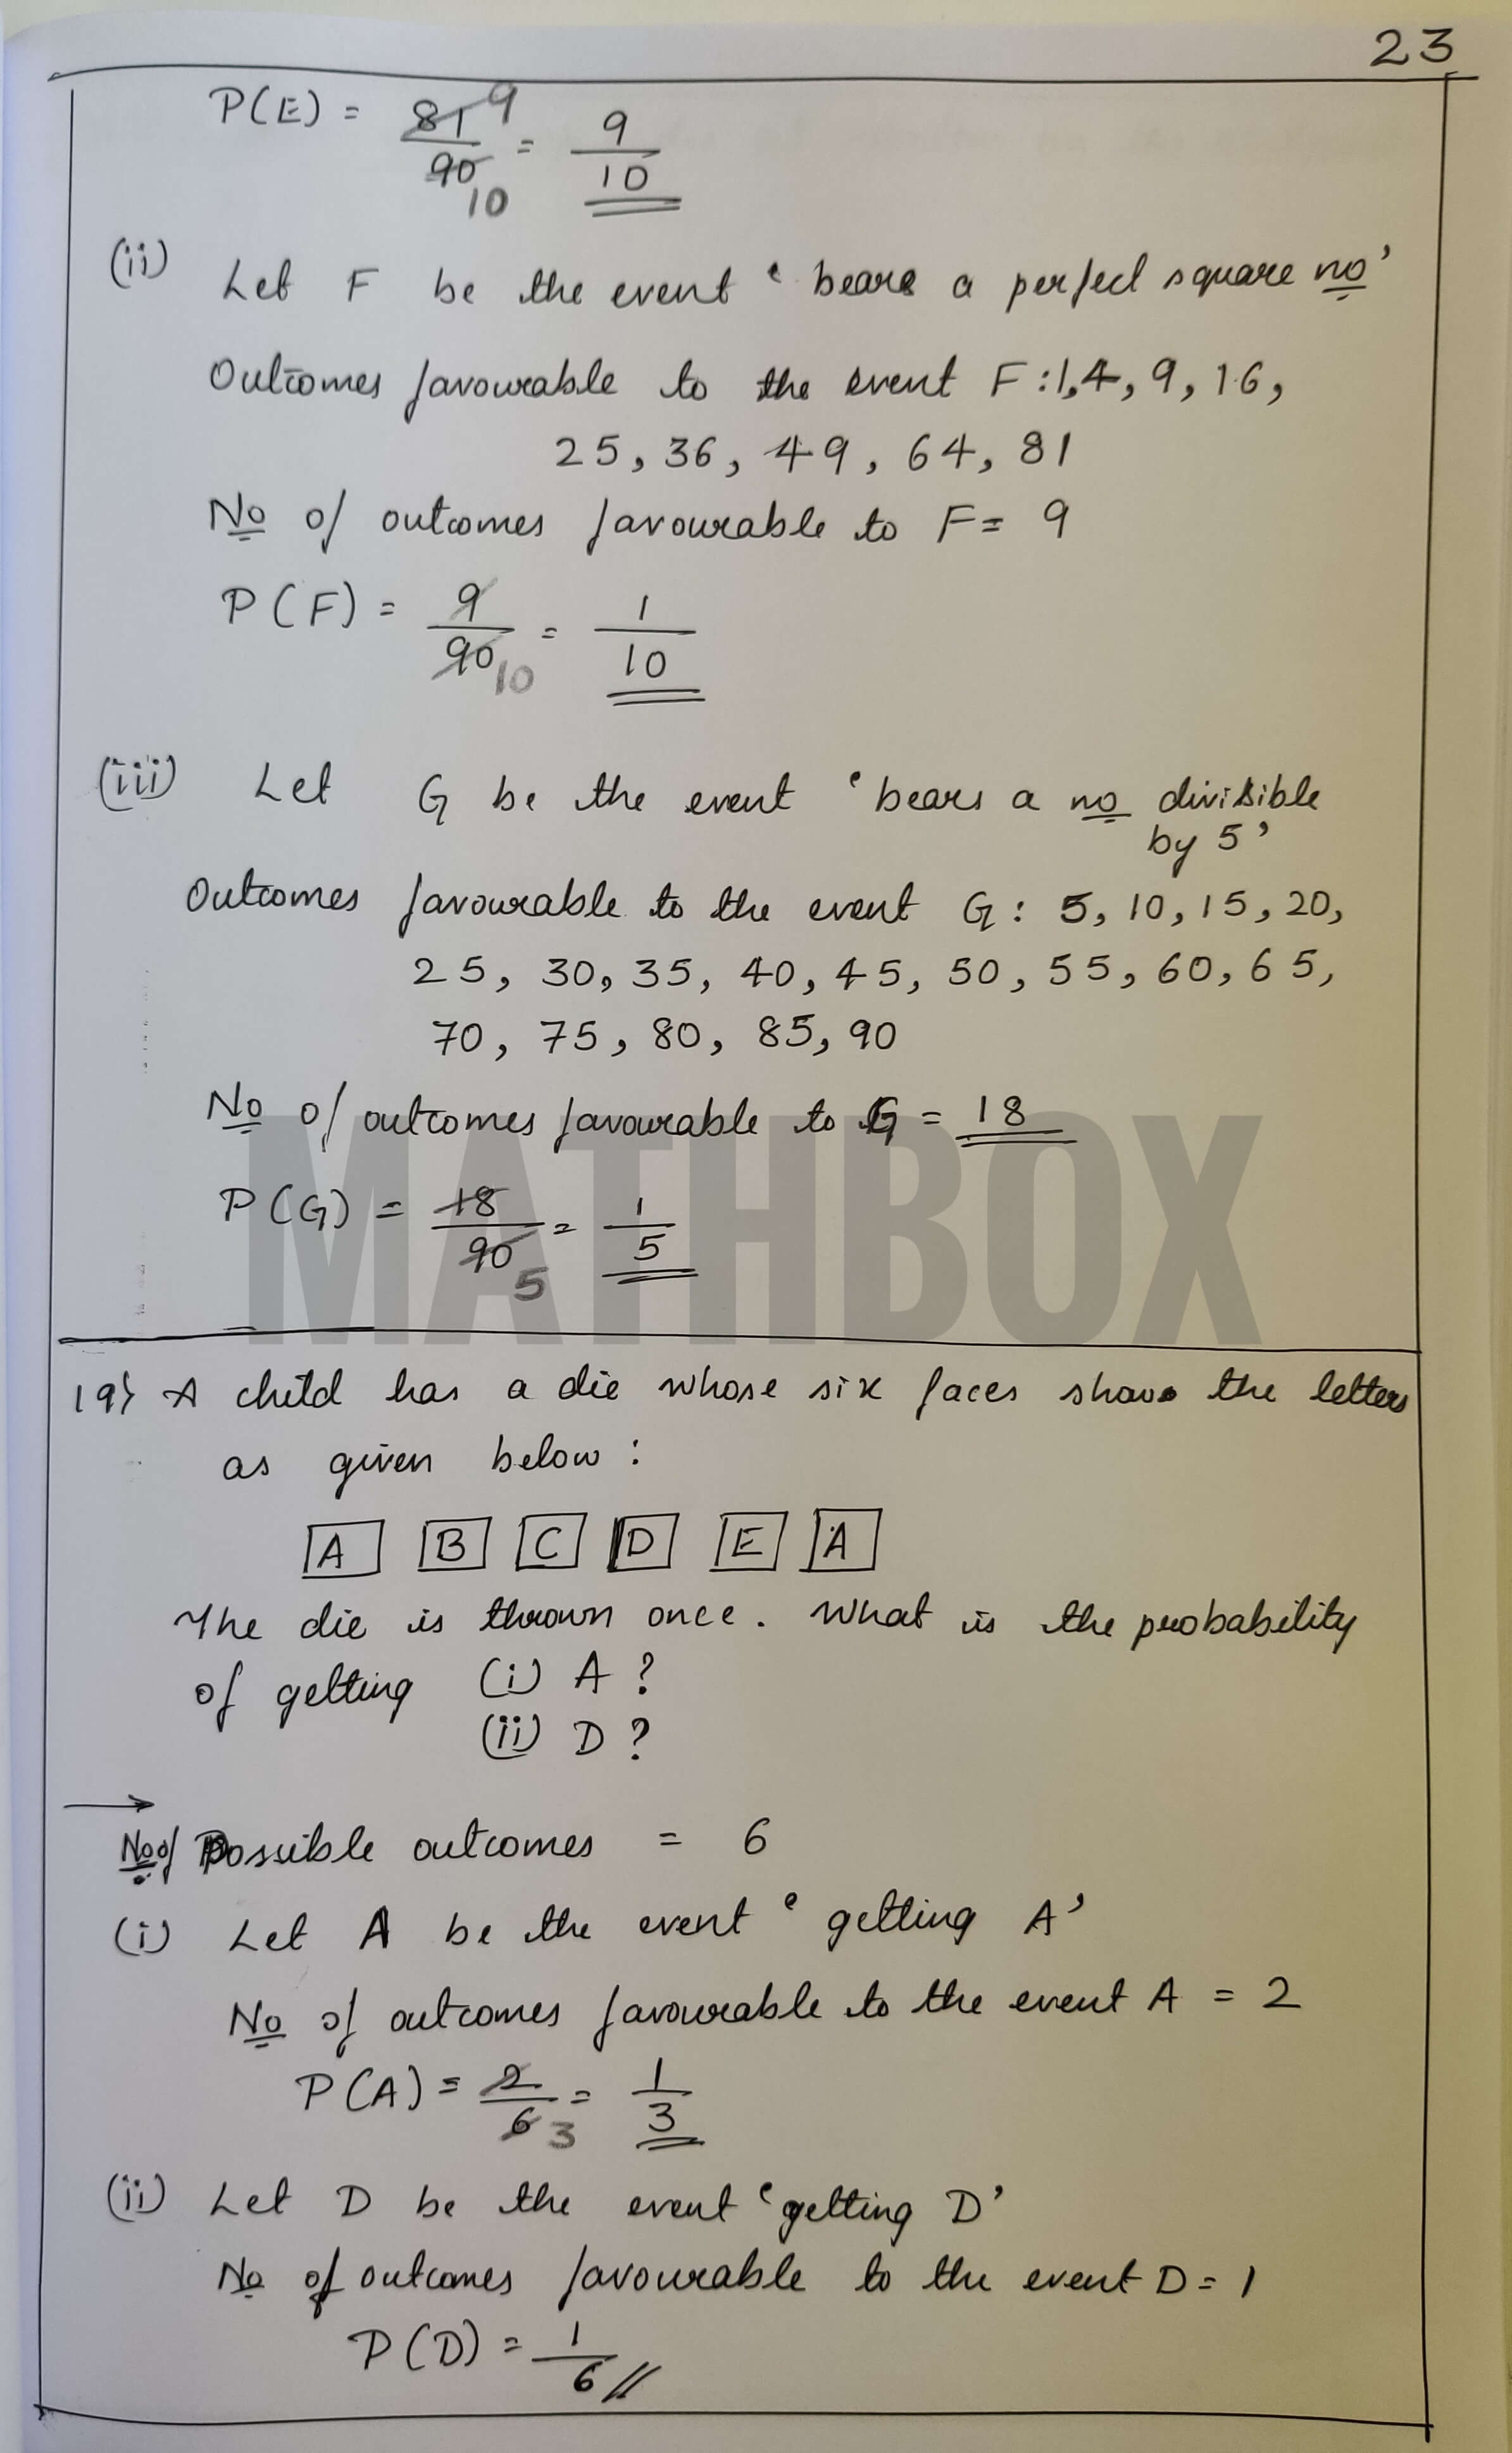 23
P(E) = 81/90 9 10 = 9/10
(ii) Let F be the event ‘ bears a perfect square no’
Outcomes favourable to the event F : 1, 4, 9, 16,
25, 36, 49, 64, 81
No of outcomes favourable to F = 9
P(F) = 9/90 10 = 1/10
(iii) Let G be the event ‘bears a no divisible
by 5’
Outcomes favourable to the event G : 5, 10, 15, 20,
25, 30, 35, 40, 45, 50, 55, 60, 65,
70, 75, 80, 85, 90
No of outcomes favourable to G = 18
P(G) = 18/90 5 = 1/5
MATHBOX
19) A child has a die whose six faces show the letters
as given below :
A B C D E A
The die is thrown once. What is the probability
of getting (i) A ?
(ii) D ?
→
No of Possible outcomes = 6
(i) Let A be the event ‘ getting A’
No of outcomes favourable to the event A = 2
P(A) = 2/6 3 = 1/3
(ii) Let D be the event ‘getting D’
No of outcomes favourable to the event D = 1
P(D) = 1/6 //